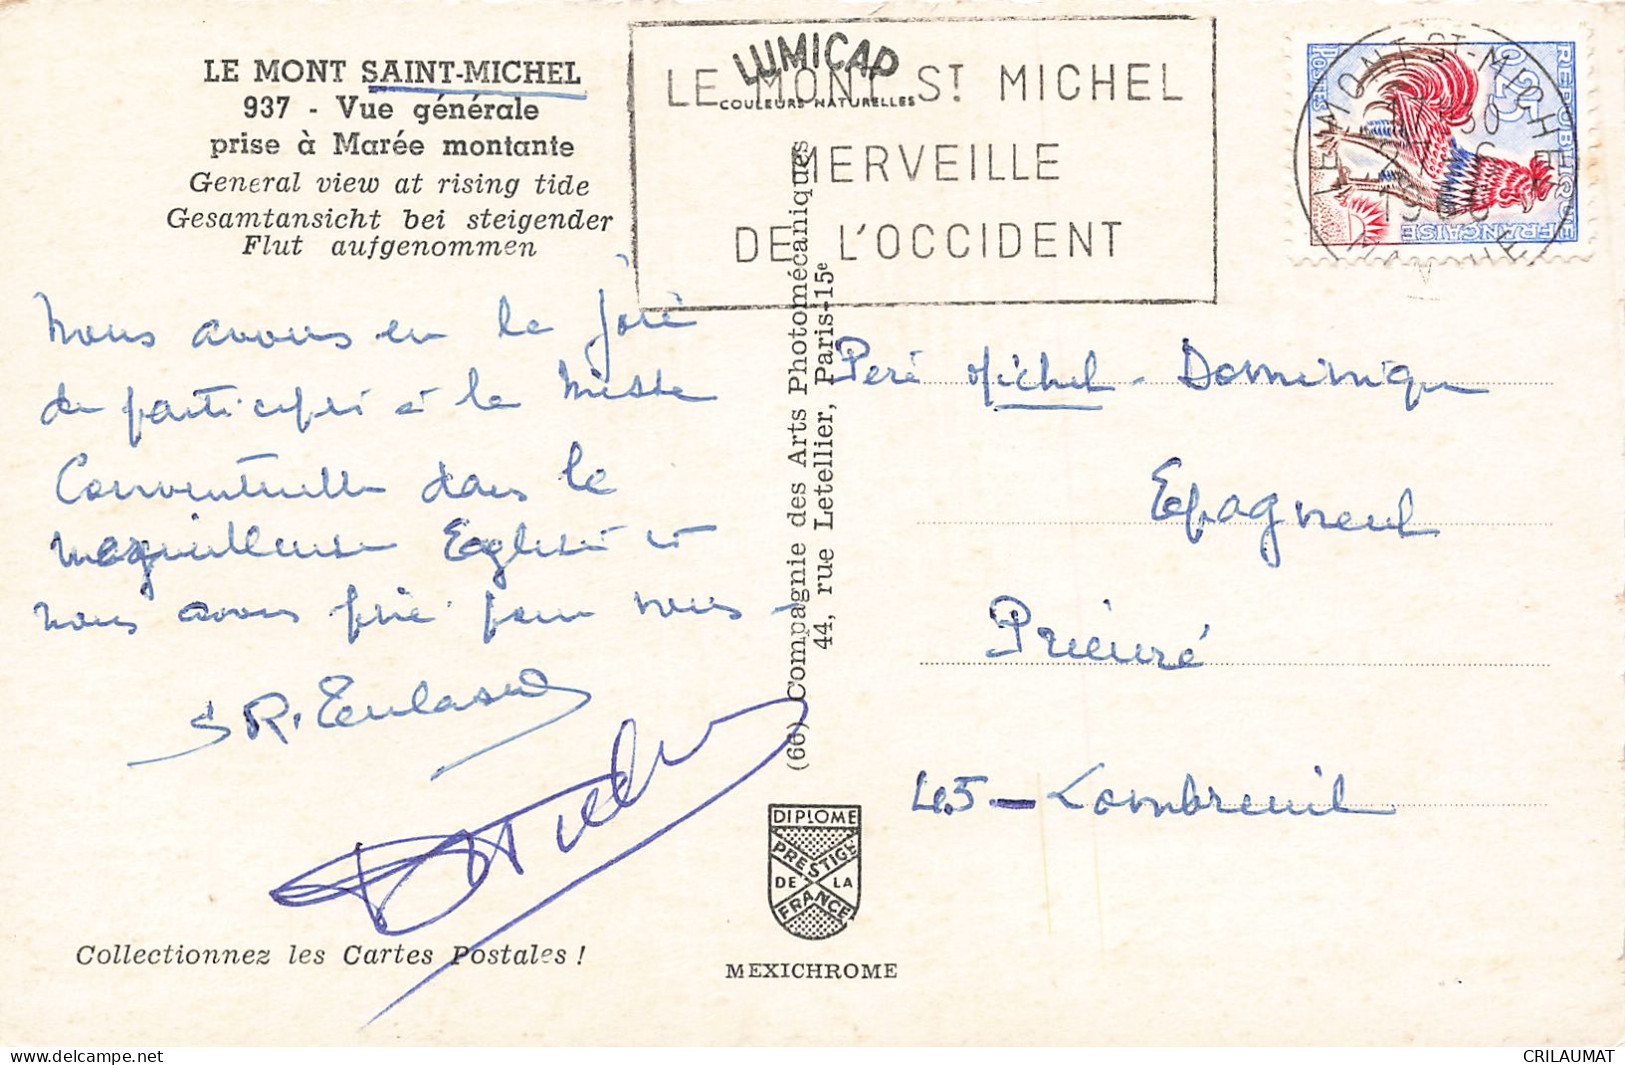 LE MONT SAINT-MICHEL
937 - Vue générale
prise à Marée montante
General view at rising tide
Gesamtansicht bei steigender
Flut aufgenommen
LUMICAP
COULEURS NATURELLES
LE MONT ST MICHEL
MERVEILLE
DE L'OCCIDENT
REPUBLIQUE FRANÇAISE
POSTES
0,25
LE MONT ST MICHEL
MANCHE
Nous avons eu la joie
de participer à la Messe
Conventuelle dans la
Eglise et
nous avons prié pour vous
S R.
Père Michel - Dominique
Epagneul
Prieuré
45 - Lombreuil
(66) Compagnie des Arts Photomécaniques
44, rue Letellier, Paris-15e
DIPLOME
PRESTIGE
DE LA
FRANCE
Collectionnez les Cartes Postales !
MEXICHROME
CRILAUMAT